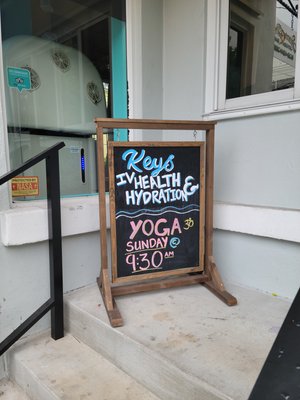 Keys
IV HEALTH &
HYDRATION
YOGA ॐ
SUNDAY @
9:30 AM